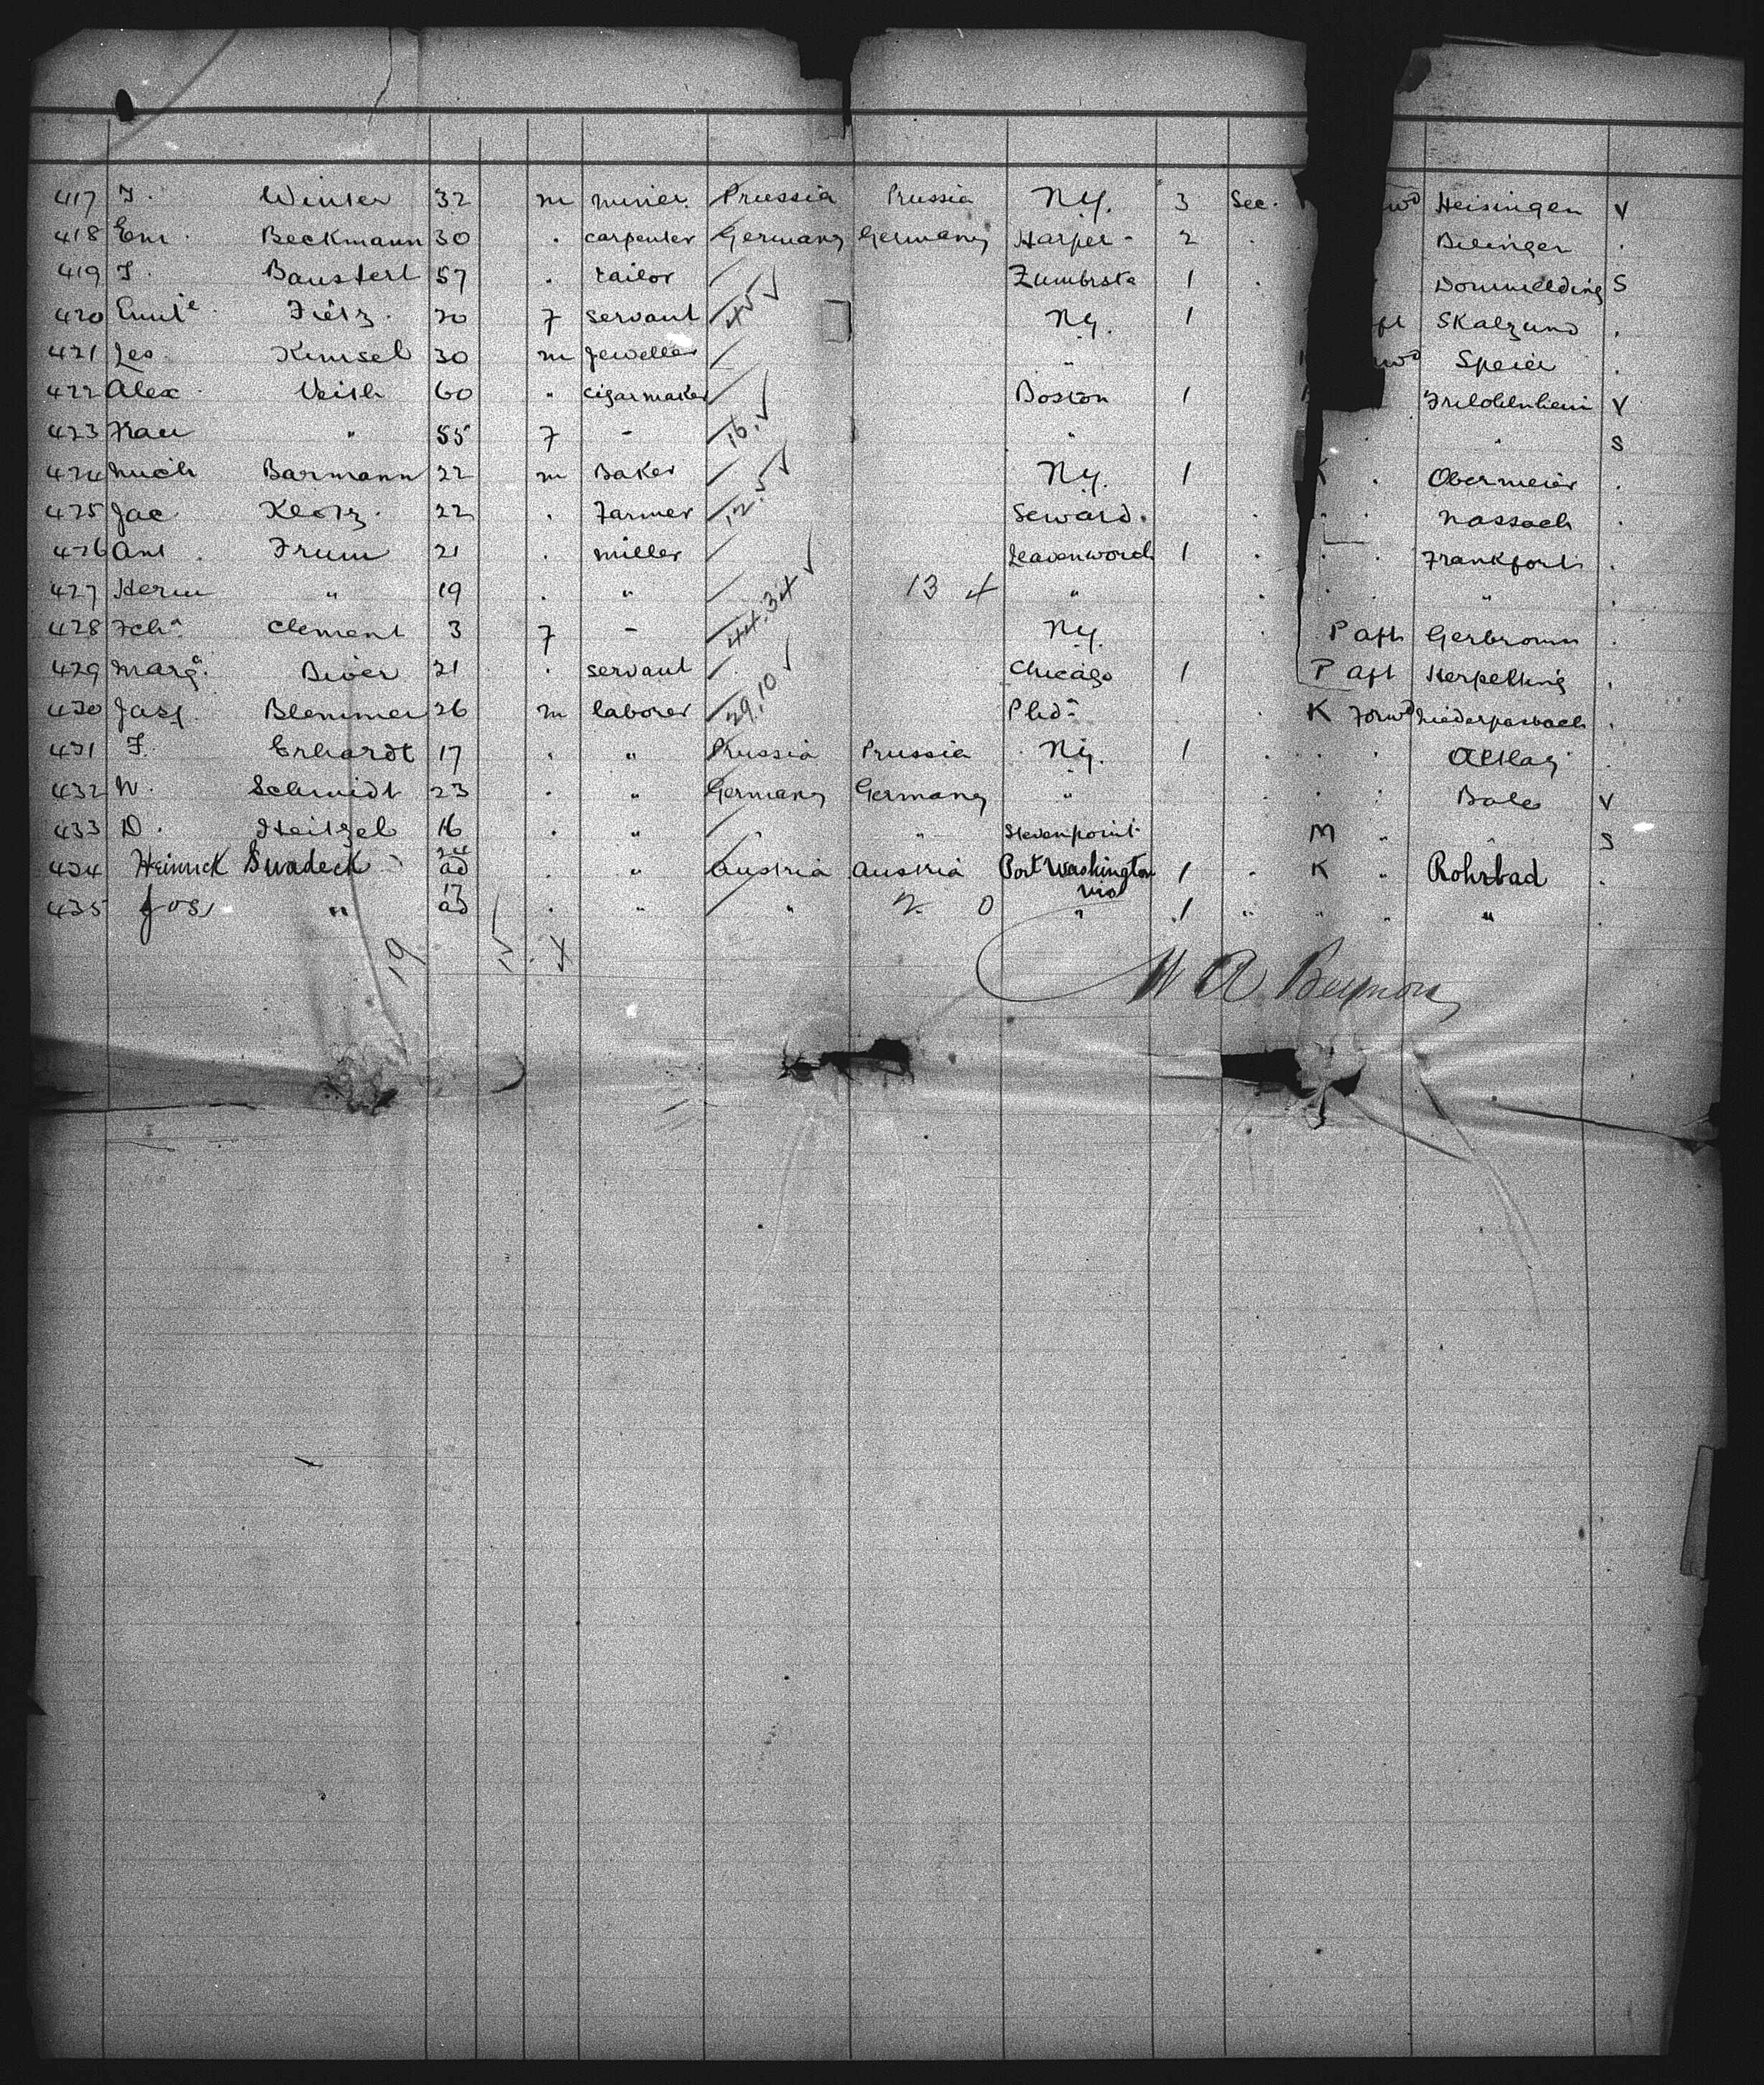 417 J. Winter 32 m miner Prussia Prussia NY. 3 Sec. Heisingen V
418 Em. Beckmann 30 . carpenter Germany Germany Harper 2 . Bilinger .
419 J. Baustert 57 . tailor / Zumbrota 1 . S
420 Emil e 20 7 servant / NY. 1 Skalzund .
421 Leo. Kimsel 30 m Jeweller / " Speier .
422 Alex Veith 60 " cigarmaker / Boston 1 V
423 Frau " 55 7 - / " " S
424 Mich Barmann 22 m Baker / NY. 1 K . Obermeier .
425 Jac. 22 . Farmer / Seward. . . . Nassach .
426 Ant. Frum 21 . miller / Leavenworth 1 . . . Frankfort .
427 Herm " 19 . " / 13 4 " . . . " .
428 Clement 3 7 - / NY. . P aft Gerbronn .
429 Marg a. Bwer 21 . servant / Chicago 1 P aft Herpelling .
430 Jasf. Blemmer 26 m laborer / Pld a . . K Forwd Niederpasbach .
431 F. Erhardt 17 . " Prussia Prussia NY. 1 . . . .
432 W. Schmidt 23 . " Germany Germany " . . . Bale V
433 D. Heitzel 16 . " / " Stevenpoint M " " S
434 Heinrich Swadeck 24 ad . " Austria Austria Port Washington 1 . K " Rohrbad .
435 Jos " 17 ad . " / " 2 0 Wis " 1 " " " " .
19